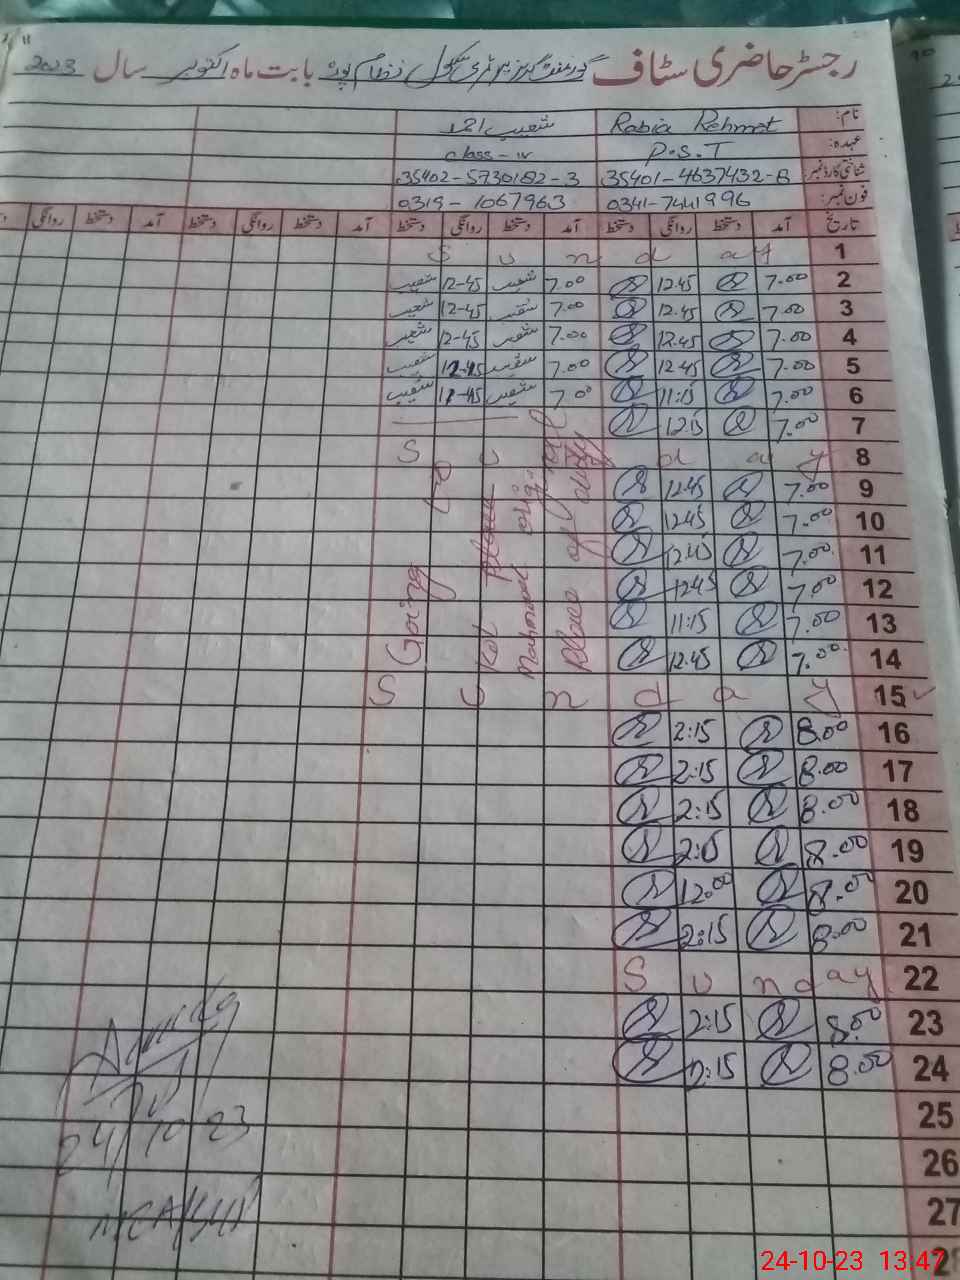 رجسٹر حاضری سٹاف گورنمنٹ گرلز ہائی سکول نظام پورہ بابت ماہ اکتوبر سال 2023
نام: Rabia Rehmat شعیب احمد
عہدہ: P.S.T class-IV
شناختی کارڈ نمبر: 35401-4637432-8 35402-5730182-3
فون نمبر: 0341-7441996 0319-1067963
تاریخ آمد دستخط روانگی دستخط آمد دستخط روانگی دستخط آمد دستخط روانگی دستخط آمد دستخط روانگی
1 Sunday
2 7.00 12.45 7.00 شعیب 12-45 شعیب
3 7.00 12.45 7.00 شعیب 12-45 شعیب
4 7.00 12.45 7.00 شعیب 12-45 شعیب
5 7.00 12.45 7.00 شعیب 12-45 شعیب
6 7.00 11:15 7.00 شعیب 11-45 شعیب
7 7.00 12.15
8 Sunday
9 7.00 12.45
10 7.00 12.45
11 7.00 12.45
12 7.00 12.45
13 7.00 11:15
14 7.00 12.45
Going to
Place of duty
15 Sunday
16 8.00 2:15
17 8.00 2:15
18 8.00 2:15
19 8.00 2:15
20 8.00 12.00
21 8.00 2:15
22 Sunday
23 8.00 2:15
24 8.00 2:15
25
26
27
24/10/23
24-10-23 13:47